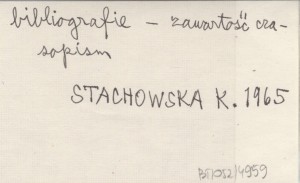 bibliografie – zawartość cza-
sopism
STACHOWSKA K. 1965
BF/052/4959